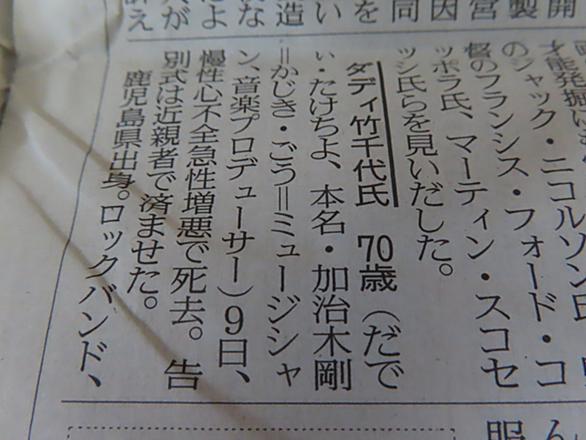 開
製
営
因
同
を
い
造
な
よ
が
訴え
才能発掘い
のジャック・ニコルソン氏
督のフランシス・フォード・コ
ッポラ氏、マーティン・スコセ
ッシ氏らを見いだした。
ダディ竹千代氏 70歳(だで
ぃ・たけちよ、本名・加治木剛
=かじき・ごう=ミュージシャ
ン、音楽プロデューサー)9日、
慢性心不全急性増悪で死去。告
別式は近親者で済ませた。
鹿児島県出身。ロックバンド、
ん
服